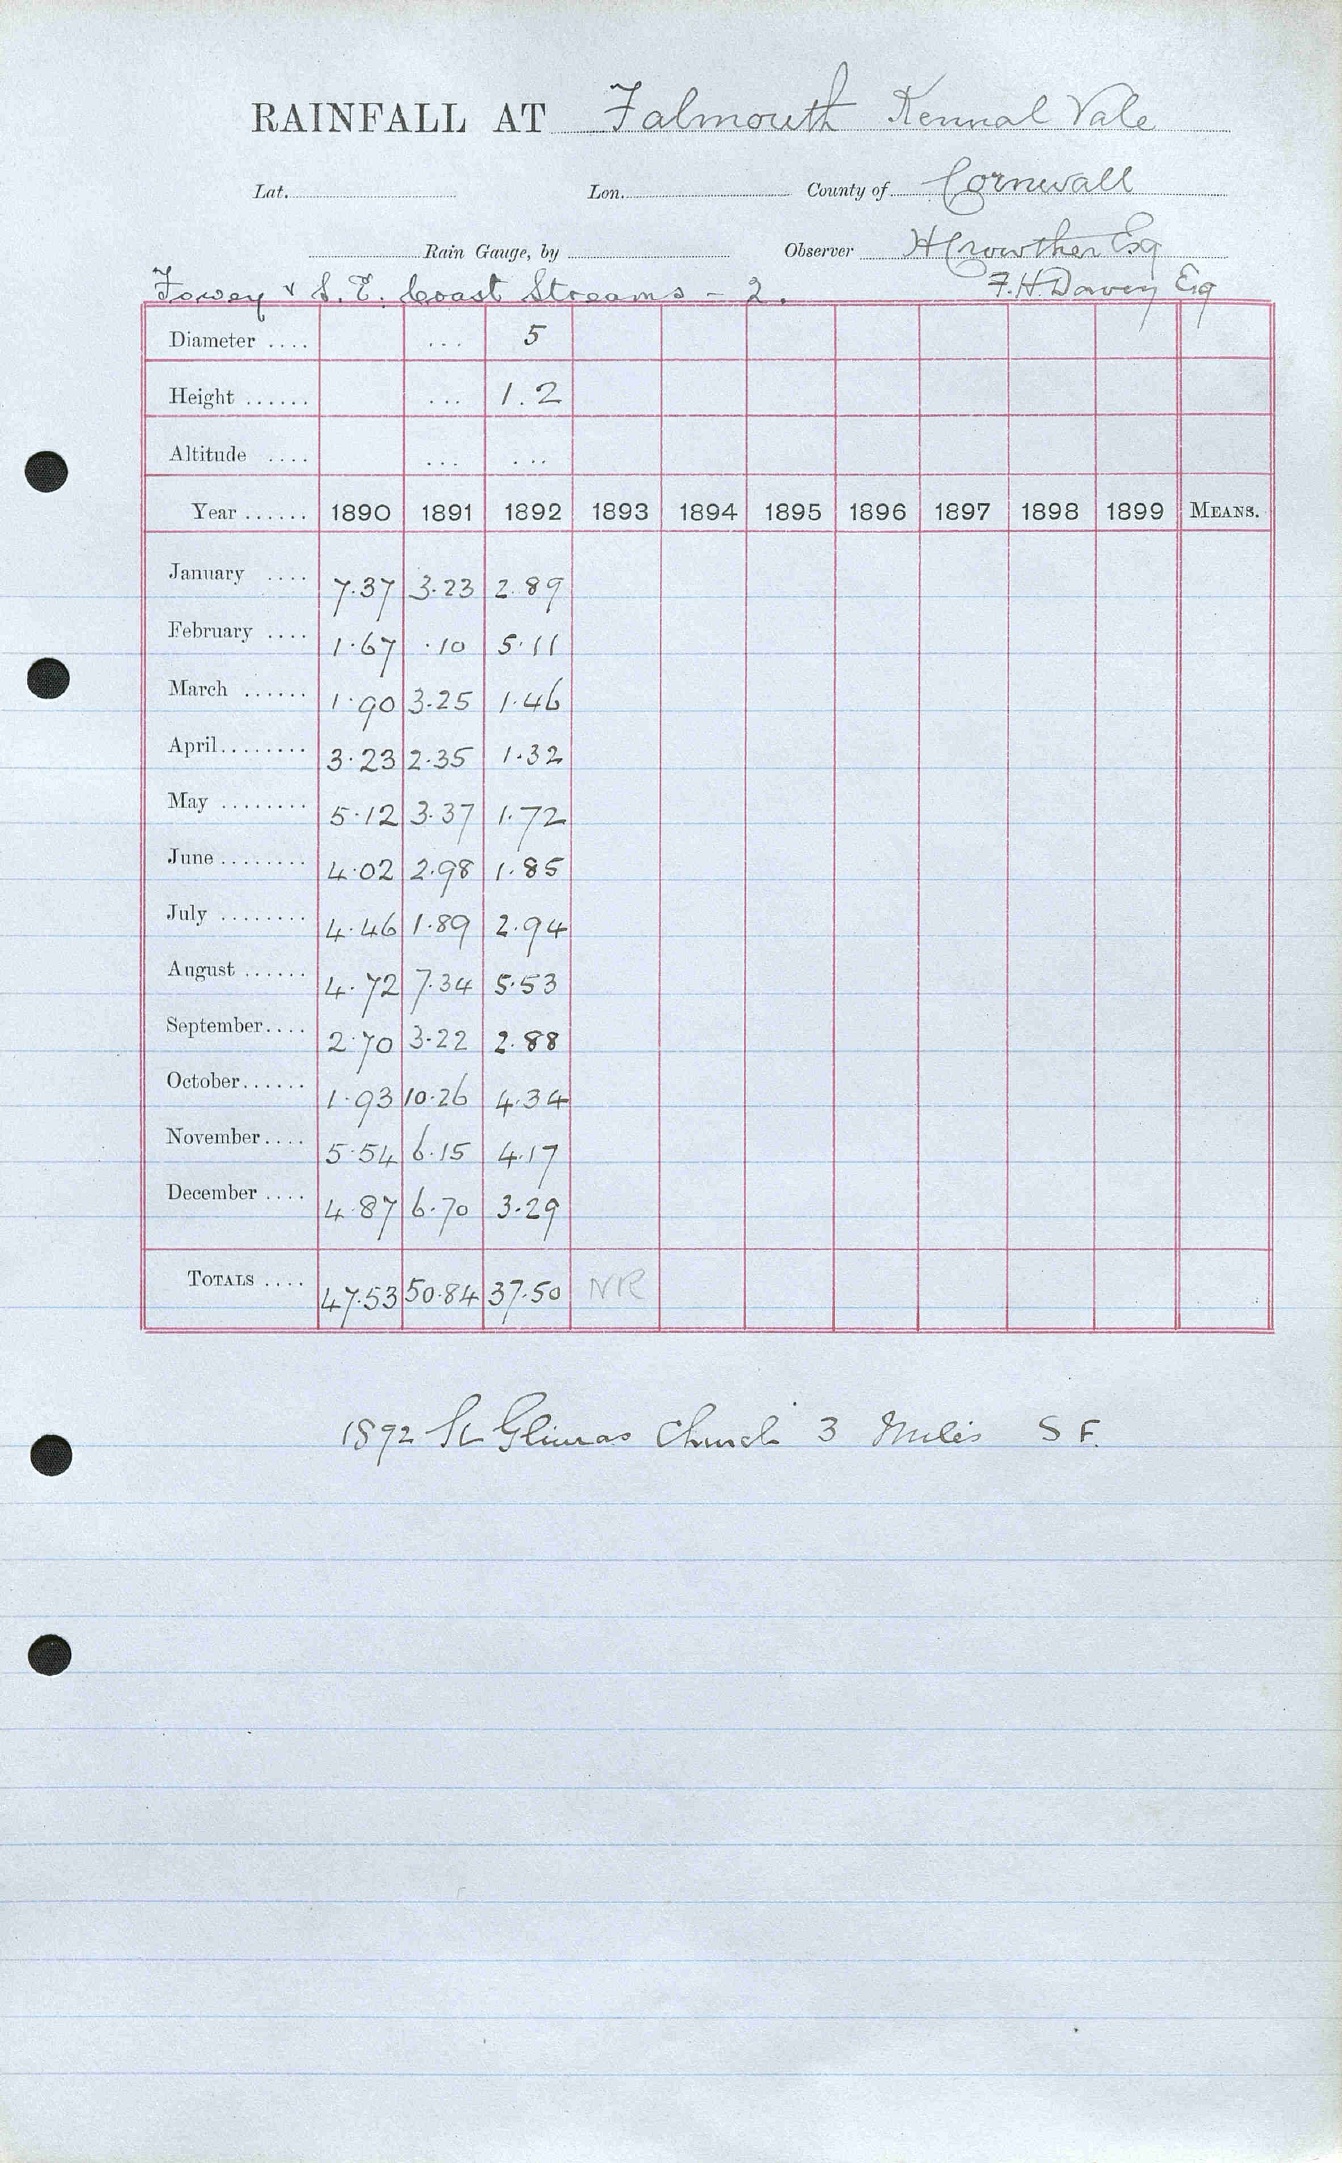 RAINFALL AT Falmouth Kennal Vale
Lat. Lon. County of Cornwall
Rain Gauge, by Observer H Crowther Esq
Fowey & S. E. Coast Streams - 2. F. H. Davey Esq
Diameter .... ... 5
Height ...... ... 1.2
Altitude .... ... ...
Year ...... 1890 1891 1892 1893 1894 1895 1896 1897 1898 1899 MEANS.
January .... 7.37 3.23 2.89
February .... 1.67 .10 5.11
March ...... 1.90 3.25 1.46
April ........ 3.23 2.35 1.32
May ........ 5.12 3.37 1.72
June ........ 4.02 2.98 1.85
July ........ 4.46 1.89 2.94
August ...... 4.72 7.34 5.53
September .... 2.70 3.22 2.88
October ...... 1.93 10.26 4.34
November .... 5.54 6.15 4.17
December .... 4.87 6.70 3.29
TOTALS .... 47.53 50.84 37.50 NR
1892 St Church 3 Miles S E.